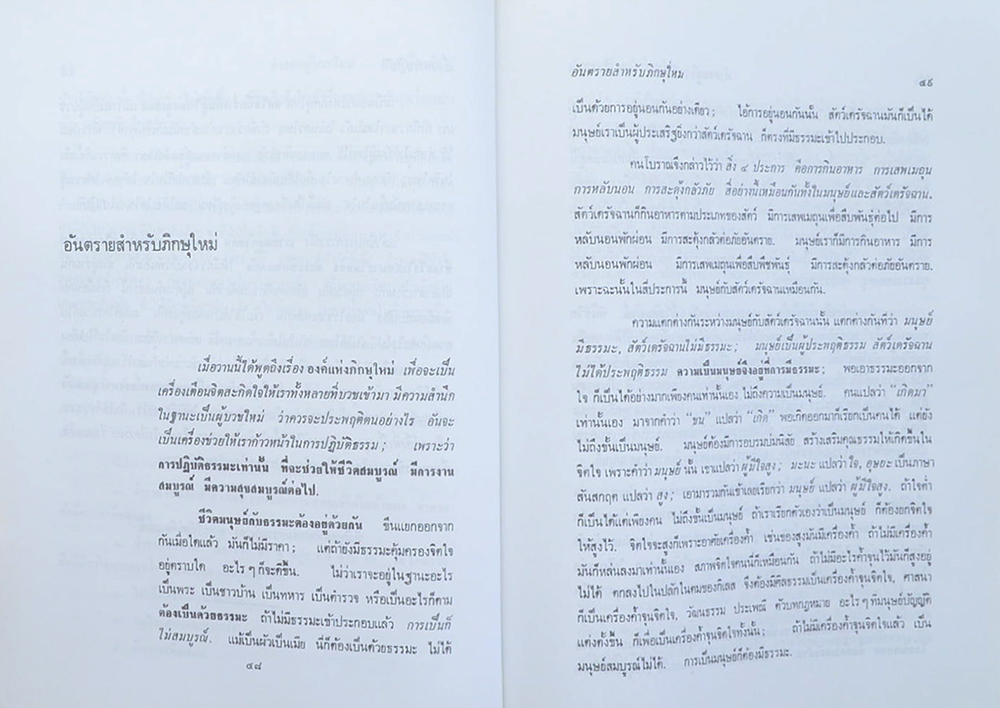 อันตรายสำหรับภิกษุใหม่
เมื่อวานนี้ได้พูดถึงเรื่อง องค์แห่งภิกษุใหม่ เพื่อจะเป็น
เครื่องเตือนจิตสะกิดใจให้เราทั้งหลายที่บวชเข้ามา มีความสำนึก
ในฐานะเป็นผู้บวชใหม่ ว่าควรจะประพฤติตนอย่างไร อันจะ
เป็นเครื่องช่วยให้เราก้าวหน้าในการปฏิบัติธรรม ; เพราะว่า
การปฏิบัติธรรมะเท่านั้น ที่จะช่วยให้ชีวิตสมบูรณ์ มีการงาน
สมบูรณ์ มีความสุขสมบูรณ์ต่อไป.
ชีวิตมนุษย์กับธรรมะต้องอยู่ด้วยกัน ขืนแยกออกจาก
กันเมื่อใดแล้ว มันก็ไม่มีราคา ; แต่ถ้ายังมีธรรมะคุ้มครองจิตใจ
อยู่คราบใด อะไร ๆ ก็จะดีขึ้น. ไม่ว่าเราจะอยู่ในฐานะอะไร
เป็นพระ เป็นชาวบ้าน เป็นทหาร เป็นตำรวจ หรือเป็นอะไรก็ตาม
ต้องเป็นด้วยธรรมะ ถ้าไม่มีธรรมะเข้าประกอบแล้ว การเป็นก็
ไม่สมบูรณ์. แม้เป็นผัวเป็นเมีย นี่ก็ต้องเป็นด้วยธรรมะ ไม่ได้
๔๘
อันตรายสำหรับภิกษุใหม่
๔๙
เป็นด้วยการอยู่นอนกันอย่างเดียว ; ไอ้การอยู่นอนกันนั้น สัตว์เดรัจฉานมันก็เป็นได้
มนุษย์เราเป็นผู้ประเสริฐยิ่งกว่าสัตว์เดรัจฉาน ก็ตรงที่มีธรรมะเข้าไปประกอบ.
คนโบราณจึงกล่าวไว้ว่า สิ่ง ๔ ประการ คือการกินอาหาร การเสพเมถุน
การหลับนอน การสะดุ้งกลัวภัย สี่อย่างนี้เหมือนกันทั้งในมนุษย์และสัตว์เดรัจฉาน.
สัตว์เดรัจฉานก็กินอาหารตามประเภทของสัตว์ มีการเสพเมถุนเพื่อสืบพันธุ์ต่อไป มีการ
หลับนอนพักผ่อน มีการสะดุ้งกลัวต่อภัยอันตราย. มนุษย์เราก็มีการกินอาหาร มีการ
หลับนอนพักผ่อน มีการเสพเมถุนเพื่อสืบพืชพันธุ์ มีการสะดุ้งกลัวต่อภัยอันตราย.
เพราะฉะนั้นในสี่ประการนี้ มนุษย์กับสัตว์เดรัจฉานเหมือนกัน.
ความแตกต่างกันระหว่างมนุษย์กับสัตว์เดรัจฉานนั้น แตกต่างกันที่ว่า มนุษย์
มีธรรมะ, สัตว์เดรัจฉานไม่มีธรรมะ ; มนุษย์เป็นผู้ประพฤติธรรม สัตว์เดรัจฉาน
ไม่ได้ประพฤติธรรม ความเป็นมนุษย์จึงอยู่ที่การมีธรรมะ ; พอเอาธรรมะออกจาก
ใจ ก็เป็นได้อย่างมากเพียงคนเท่านั้นเอง ไม่ถึงความเป็นมนุษย์. คนแปลว่า “เกิดมา”
เท่านั้นเอง มาจากคำว่า “ชน” แปลว่า “เกิด” พอเกิดออกมาก็เรียกเป็นคนได้ แต่ยัง
ไม่ถึงขั้นเป็นมนุษย์. มนุษย์ต้องมีการอบรมบ่มนิสัย สร้างเสริมคุณธรรมให้เกิดขึ้นใน
จิตใจ เพราะคำว่า มนุษย์ นั้น เขาแปลว่า ผู้มีใจสูง ; มะนะ แปลว่า ใจ, อุษยะ เป็นภาษา
สันสกฤต แปลว่า สูง ; เอามารวมกันเข้าเลยเรียกว่า มนุษย์ แปลว่า ผู้มีใจสูง. ถ้าใจต่ำ
ก็เป็นได้แต่เพียงคน ไม่ถึงขั้นเป็นมนุษย์ ถ้าเราเรียกตัวเองว่าเป็นมนุษย์ ก็ต้องยกจิตใจ
ให้สูงไว้. จิตใจจะสูงก็เพราะอาศัยเครื่องค้ำ เช่นของสูงมันมีเครื่องค้ำ ถ้าไม่มีเครื่องค้ำ
มันก็หล่นลงมาเท่านั้นเอง สภาพจิตใจคนนี้ก็เหมือนกัน ถ้าไม่มีอะไรค้ำจุนไว้มันก็สูงอยู่
ไม่ได้ ตกลงไปในปลักในตมของกิเลส จึงต้องมีศีลธรรมเป็นเครื่องค้ำจุนจิตใจ, ศาสนา
ก็เป็นเครื่องค้ำจุนจิตใจ, วัฒนธรรม ประเพณี ตัวบทกฎหมาย อะไร ๆ ที่มนุษย์บัญญัติ
แต่งตั้งขึ้น ก็เพื่อเป็นเครื่องค้ำจุนจิตใจทั้งนั้น ; ถ้าไม่มีเครื่องค้ำจุนจิตใจแล้ว เป็น
มนุษย์สมบูรณ์ไม่ได้. การเป็นมนุษย์ก็ต้องมีธรรมะ.